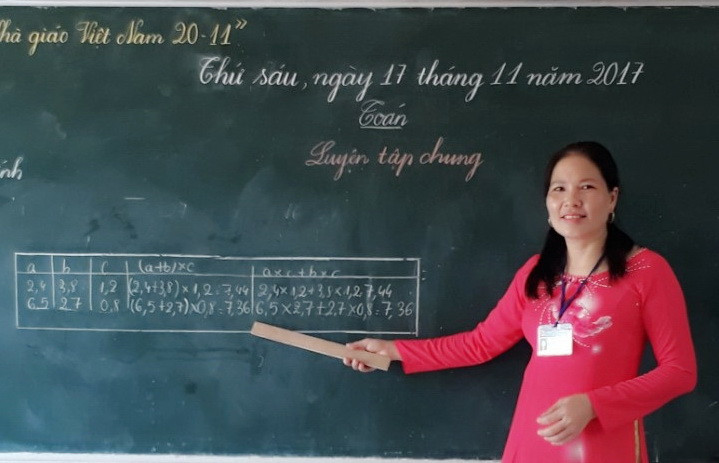 hà giáo Việt Nam 20-11"
Thứ sáu, ngày 17 tháng 11 năm 2017
Toán
Luyện tập chung
ính
a b c (a+b)×c a×c+b×c
2,4 3,8 1,2 (2,4+3,8)×1,2=7,44 2,4×1,2+3,8×1,2 7,44
6,5 2,7 0,8 (6,5+2,7)×0,8=7,36 6,5×2,7+2,7×0,8=7,36